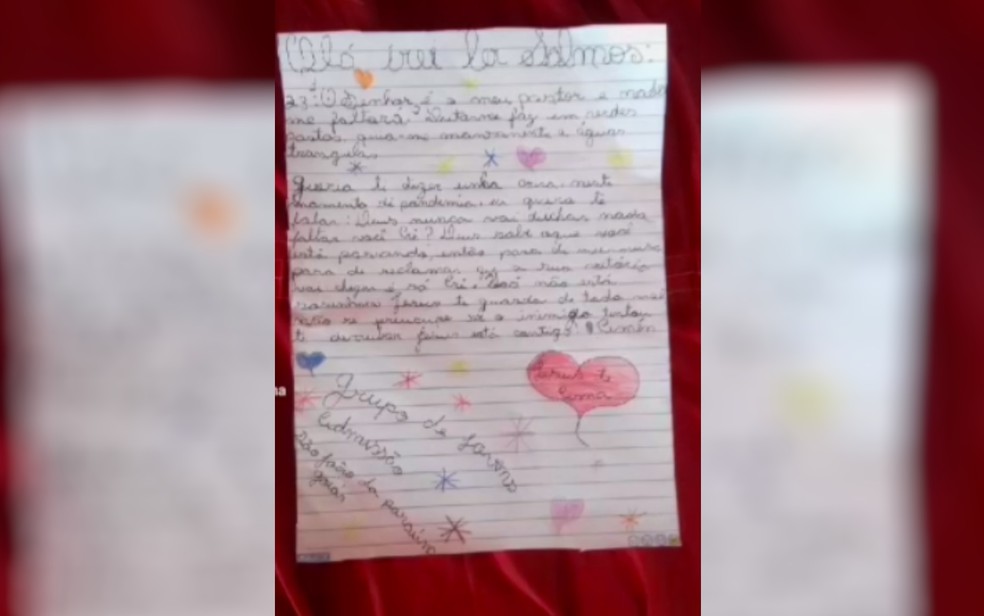 Olá irei ler Salmos:
23: O Senhor é o meu pastor e nada
me faltará. Deitar-me faz em verdes
pastos, guia-me mansamente a águas
tranquilas
Queria te dizer uma coisa neste
momento de pandemia, eu quero te
falar: Deus nunca vai deichar nada
faltar você Crê? Deus sabe oque você
está passando, então para de
para de reclamar, que a sua vitória
vai chegar é só Crê. Você não está
sozinho Jesus te guarda de todo mal
não se preocupe se o inimigo tentar
te derrubar Jesus está contigo! Amém
Jesus te
ama
Grupo de Jovens
Admissão
São João da paraúna
goiás